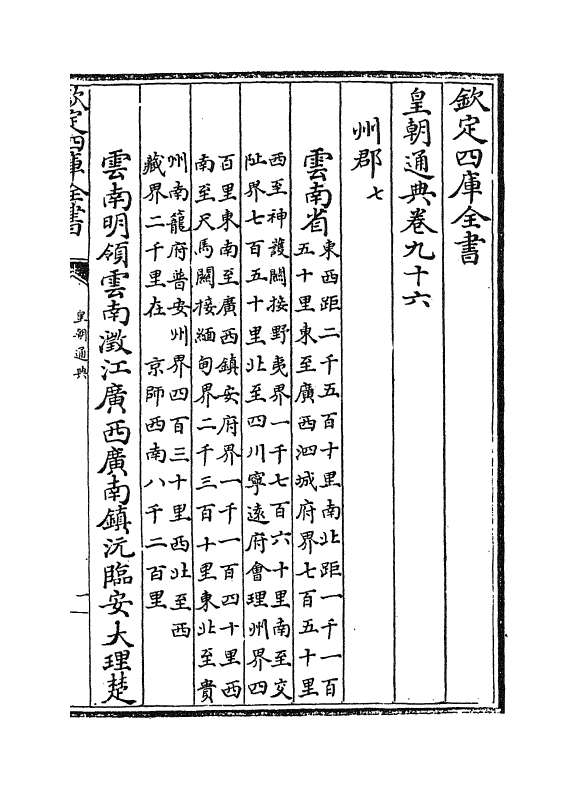 欽定四庫全書
皇朝通典卷九十六
州郡七
雲南省
東西距二千五百十里南北距一千一百
五十里東至廣西泗城府界七百五十里
西至神護關接野夷界一千七百六十里南至交
阯界七百五十里北至四川寧遠府會理州界四
百里東南至廣西鎮安府界一千一百四十里西
南至尺馬關接緬甸界二千三百十里東北至貴
州南籠府普安州界四百三十里西北至西
藏界二千里在 京師西南八千二百里
雲南明領雲南澂江廣西廣南鎮沅臨安大理楚
欽定四庫全書
皇朝通典
一